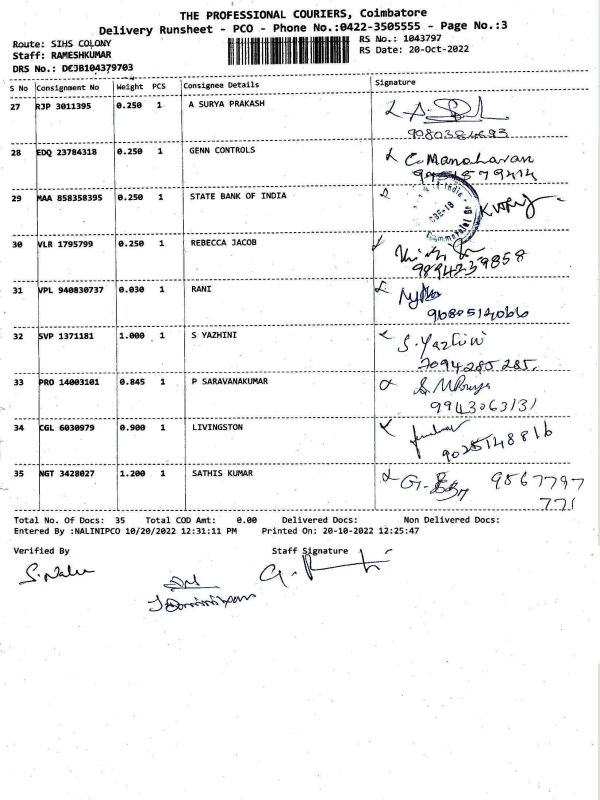 THE PROFESSIONAL COURIERS, Coimbatore
Delivery Runsheet - PCO - Phone No.:0422-3505555 - Page No.:3
Route: SIHS COLONY
Staff: RAMESHKUMAR
DRS No.: DCJB104379703
RS No.: 1043797
RS Date: 20-Oct-2022
S No Consignment No Weight PCS Consignee Details Signature
27 RJP 3011395 0.250 1 A SURYA PRAKASH
28 EDQ 23784318 0.250 1 GENN CONTROLS C. Manoharan
29 MAA 858358395 0.250 1 STATE BANK OF INDIA
30 VLR 1795799 0.250 1 REBECCA JACOB
9894239858
31 VPL 940830737 0.030 1 RANI
32 SVP 1371181 1.000 1 S YAZHINI S. Yazhini
7094285285.
33 PRO 14003101 0.845 1 P SARAVANAKUMAR
9943063131
34 CGL 6030979 0.900 1 LIVINGSTON
9025148816
35 NGT 3428027 1.200 1 SATHIS KUMAR 9567797
771
Total No. Of Docs: 35 Total COD Amt: 0.00 Delivered Docs: Non Delivered Docs:
Entered By :NALINIPCO 10/20/2022 12:31:11 PM Printed On: 20-10-2022 12:25:47
Verified By Staff Signature